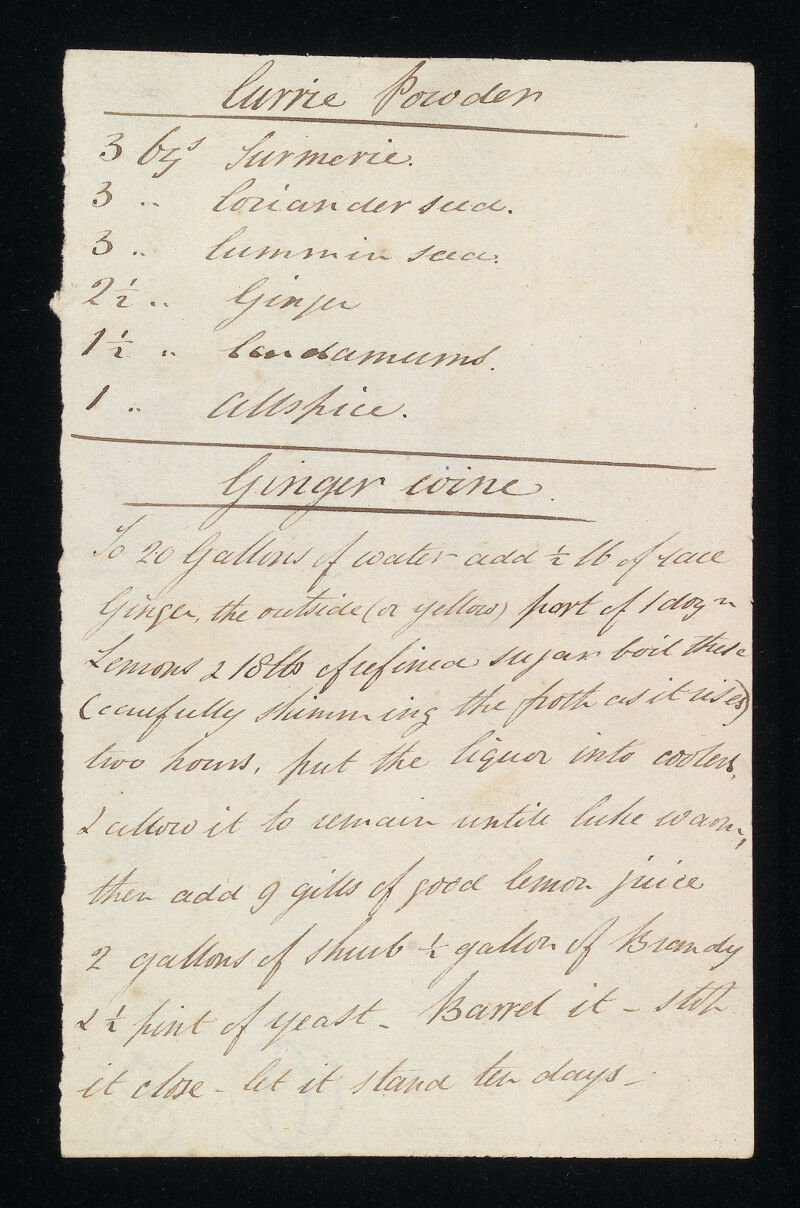 Currie Powder
3 ozs Turmeric.
3 " Coriander seed.
3 " Cummin seed.
2½ " Ginger
1½ " Cardamums.
1 " Allspice.
Ginger wine.
To 20 Gallons of water add ½ lb of race
Ginger, the outside (or yellow) part of 1 dozn
Lemons & 18 lbs of refined sugar boil these
(carefully skimming the froth as it rises)
two hours, put the liquor into coolers,
& allow it to remain until luke warm,
then add 9 gills of good lemon juice
2 gallons of shrub ½ gallon of Brandy
& ½ pint of yeast - Barrel it - stop
it close - let it stand ten days -